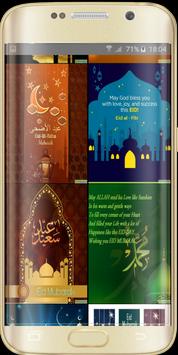 18:04
عيد الأضحى
Eid-Ul-Adha
Mubarak
May God bless you
with love, joy, and success
this EID!
Eid al - Fitr
عيد سعيد
Eid Mubarak
May ALLAH send his Love like Sunshine
In his warm and gentle ways
To fill every corner of your Heart
And filled your Life with a lot of
Happiness like this EID DAY
Wishing you EID MUBARAK
محمد